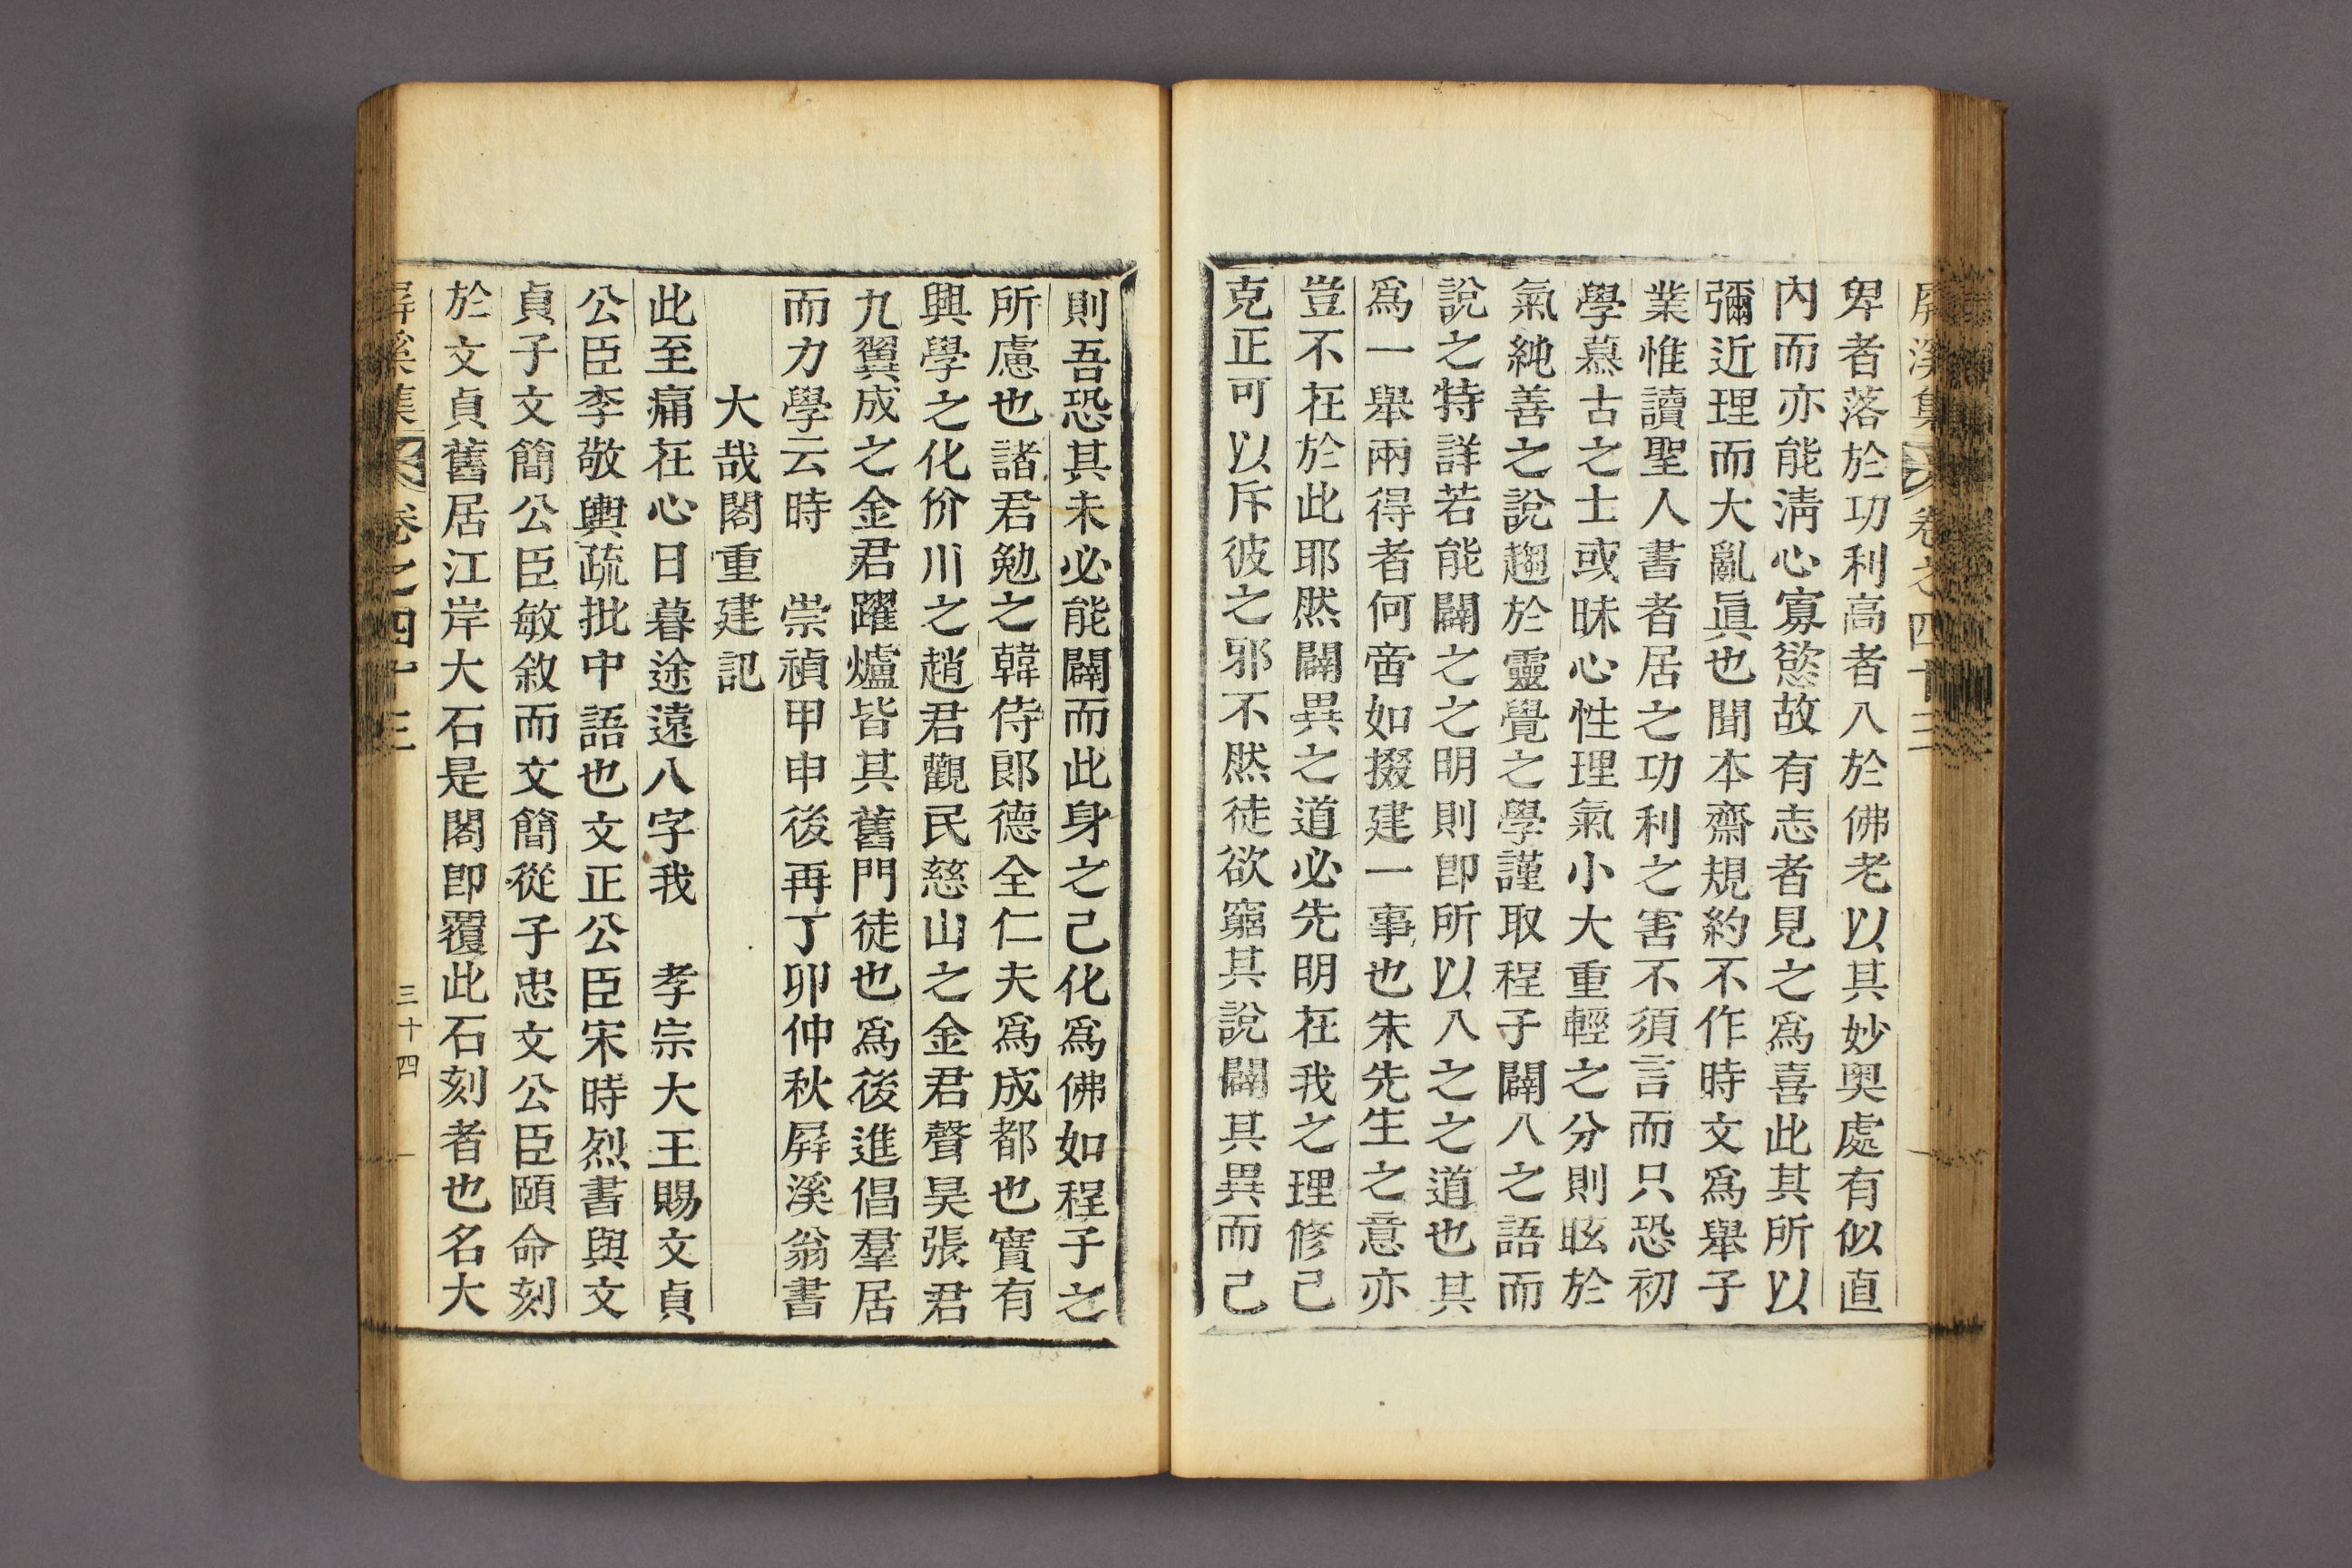 屛溪集 卷之四十三
卑者落於功利高者入於佛老以其妙奧處有似直
內而亦能淸心寡慾故有志者見之爲喜此其所以
彌近理而大亂眞也聞本齋規約不作時文爲舉子
業惟讀聖人書者居之功利之害不須言而只恐初
學慕古之士或昧心性理氣小大重輕之分則眩於
氣純善之說趨於靈覺之學謹取程子闢入之語而
說之特詳若能闢之之明則卽所以入之之道也其
爲一舉兩得者何啻如掇建一事也朱先生之意亦
豈不在於此耶然闢異之道必先明在我之理修己
克正可以斥彼之邪不然徒欲窮其說闢其異而已
則吾恐其未必能闢而此身之己化爲佛如程子之
所慮也諸君勉之韓侍郎德全仁夫爲成都也實有
興學之化价川之趙君觀民慈山之金君聲昊張君
九翼成之金君躍爐皆其舊門徒也爲後進倡羣居
而力學云時 崇禎甲申後再丁卯仲秋屛溪翁書
大哉閣重建記
此至痛在心日暮途遠八字我 孝宗大王賜文貞
公臣李敬輿疏批中語也文正公臣宋時烈書與文
貞子文簡公臣敏敘而文簡從子忠文公臣頤命刻
於文貞舊居江岸大石是閣卽覆此石刻者也名大
屛溪集 卷之四十三 三十四